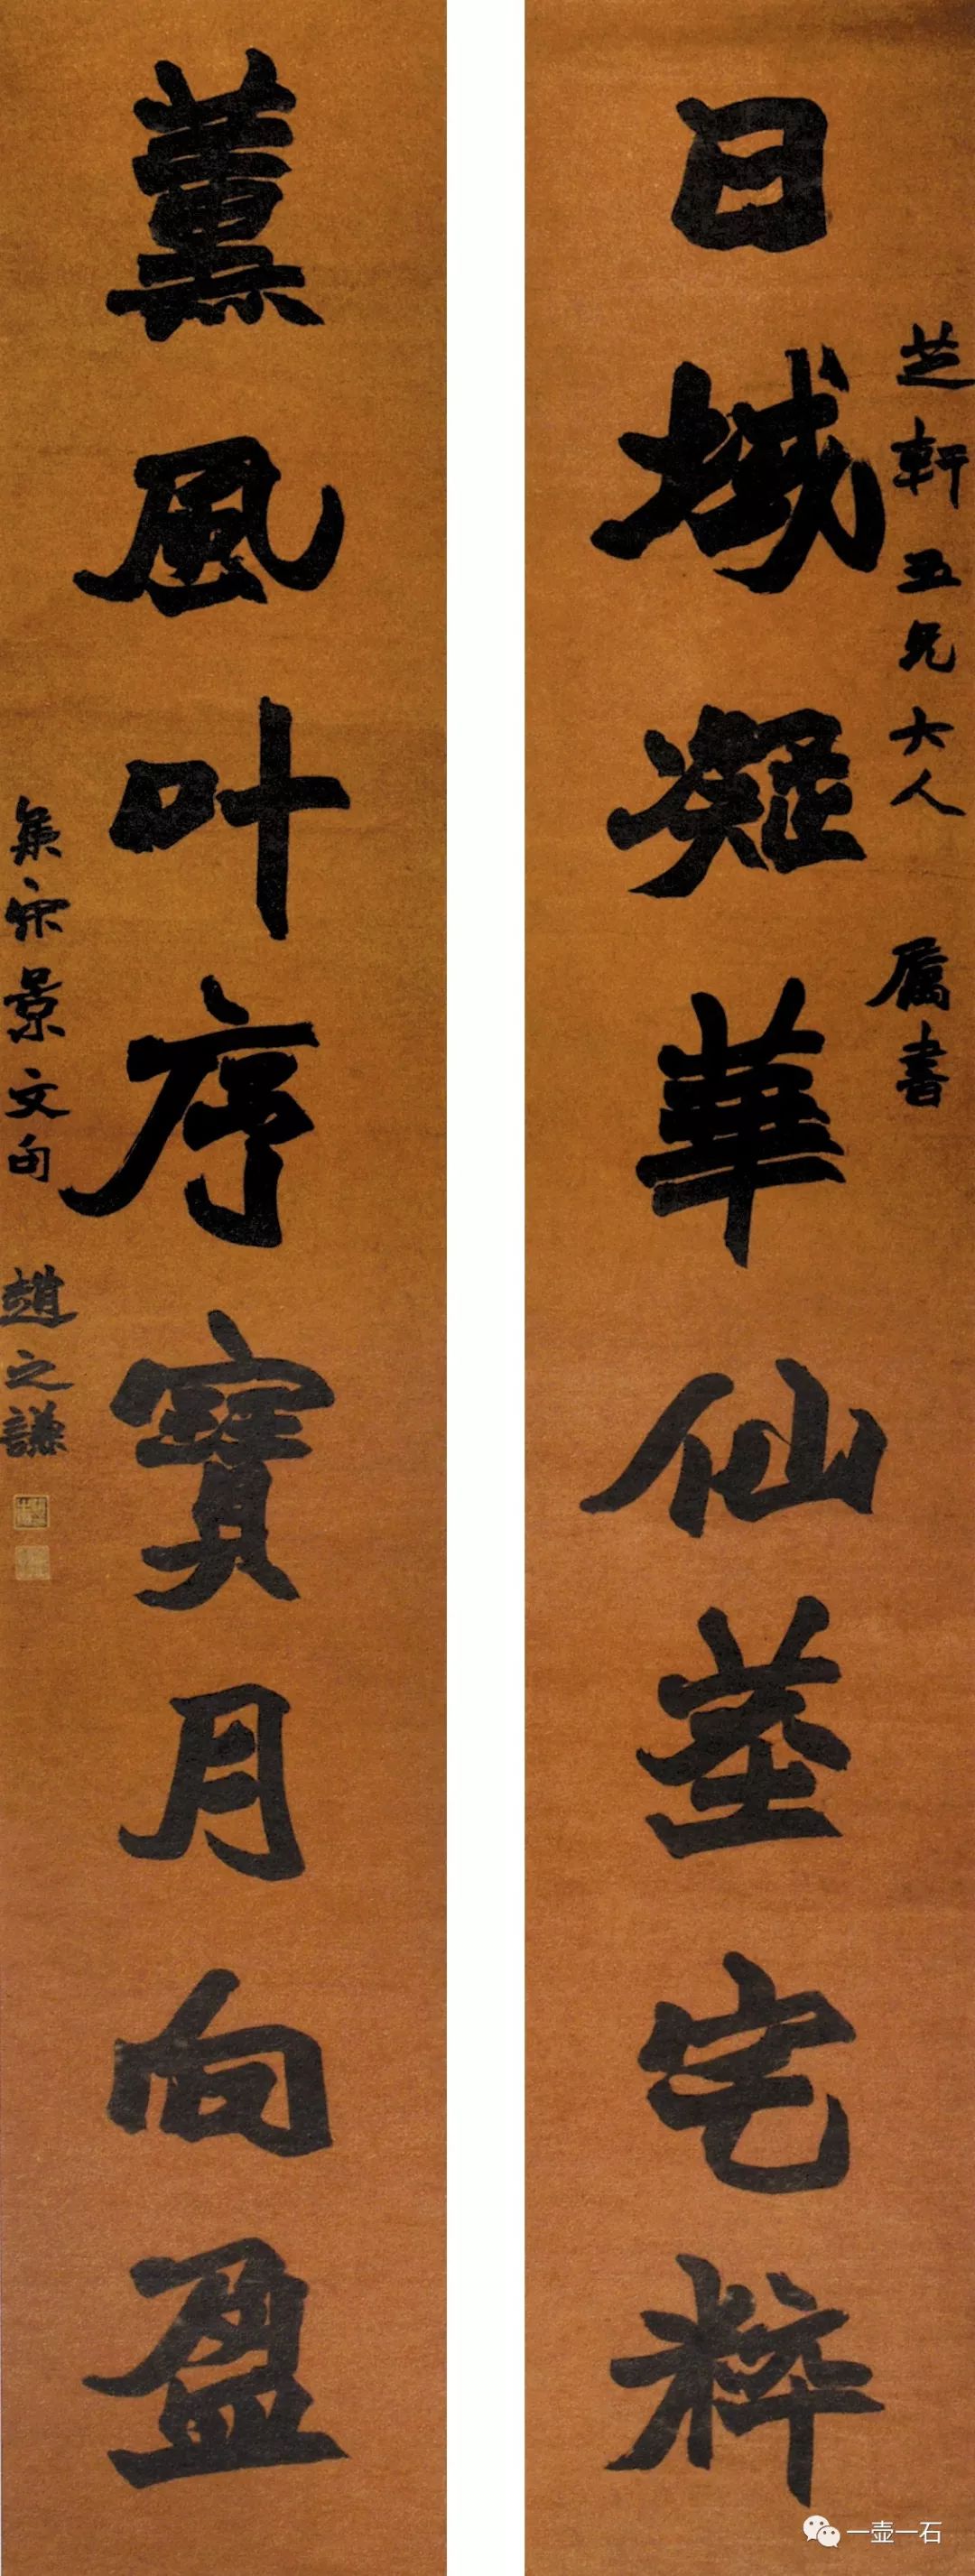 芝軒五兄大人 屬書
日域凝華仙莖宅粹
薰風叶序寶月向盈
集宋景文句 趙之謙
一壶一石